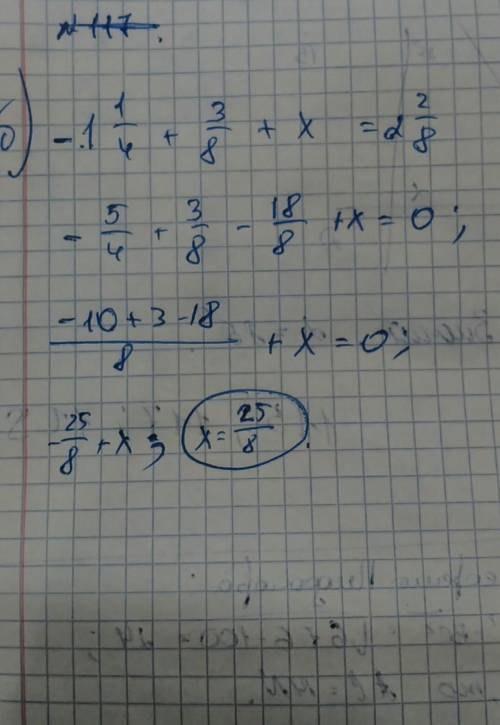 № 117.
б) -1 1/4 + 3/8 + x = 2 2/8
- 5/4 + 3/8 - 18/8 + x = 0;
(-10 + 3 - 18)/8 + x = 0;
- 25/8 + x ; x = 25/8.